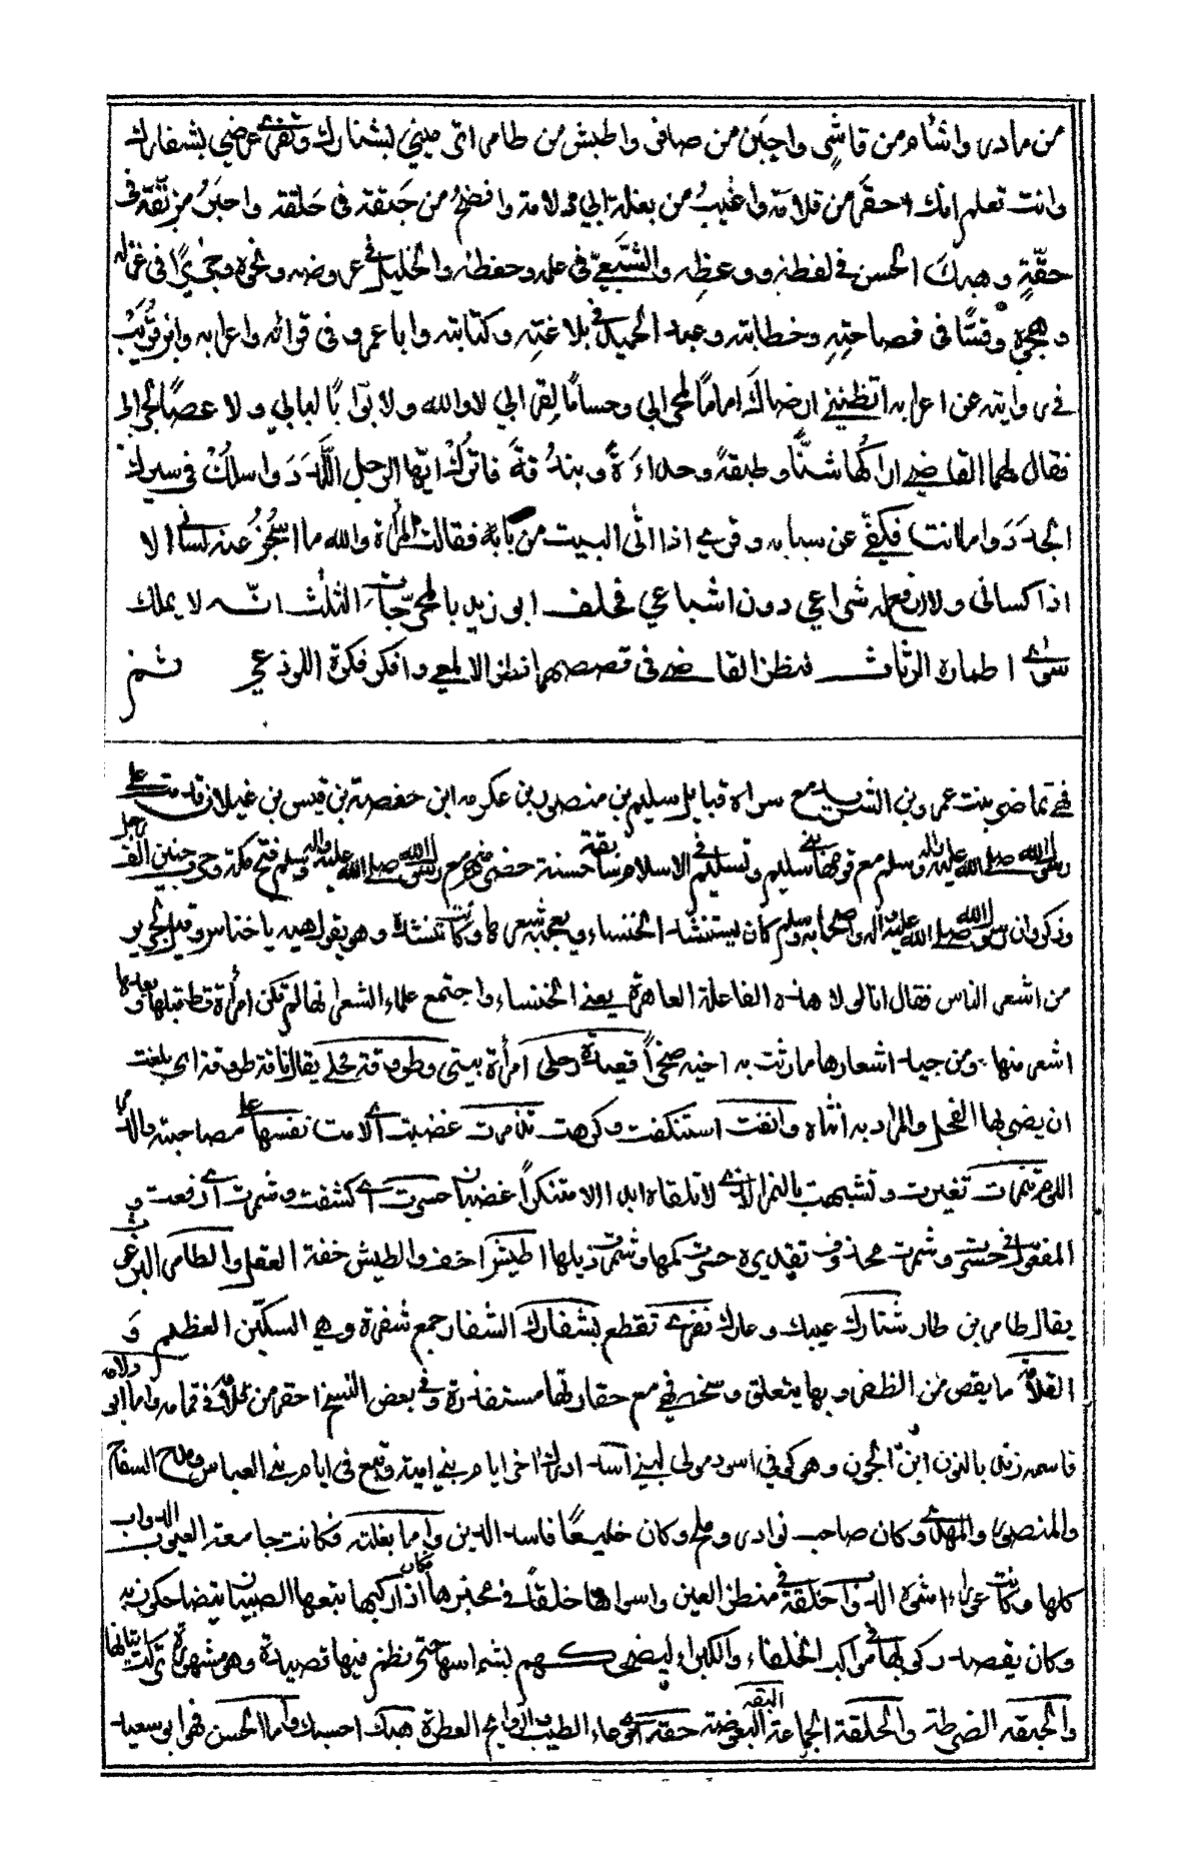 من مادر واشأم من قاشر واجبن من صافر واطيش من طامر اترميني بشنارك وتفري عرضي بشفارك
وانت تعلم انك احقر من قلامة واعيب من بغلة ابي دلامة وافضح من حبقة في حلقة واحير من بقة في
حقة وهبك الحسن في لفظه ووعظه والشعبي في علمه وحفظه والخليل في عروضه ونحوه وجريرا في غزله
وهجوه وقسا في فصاحته وخطابته وعبد الحميد في بلاغته وكتابته وابا عمرو في قرائه واعرابه وابن قريب
في روايته عن اعرابه اتظنني ارضاك اماما لمحرابي وحساما لقرابي لا والله ولا بوابا لبابي ولا عصا لجرابي
فقال لهما القاضي اراكما شنا وطبقة وحداءة وبندقة فاترك ايها الرجل اللدد واسلك في سيرك
الجدد واما انت فكفي عن سبابه وقري اذا اتى البيت من بابه فقالت المرأة والله ما اسجن عنه لساني الا
اذا كساني ولا ارفع له شراعي دون اشباعي فحلف ابو زيد بالمحرجات الثلث انه لا يملك
سوى اطماره الرثاث فنظر القاضي في قصصهما نظر الالمعي وافكر فكرة اللوذعي ثم
هي تماضر بنت عمرو بن الشريد مع سراة قبايل سليم بن منصور بن عكرمه ابن حفصة بن قيس بن غيلان قدمت على
رسول الله صلى الله عليه واله وسلم مع قومها بني سليم وتسليم في الاسلام سابقة حسنة حضر منهم مع رسول الله صلى الله عليه واله وسلم فتح مكة وحرب حنين الف رجل
وذكر ان رسول الله صلى الله عليه واله واصحابه وسلم كان يستنشد الخنساء ويعجبه شعرها وكانت تنشده وهو يقول هيه يا خناس وقيل لجرير
من اشعر الناس فقال انا لولا هذه الفاعلة العاهرة يعني الخنساء واجتمع علماء الشعر انها لم تكن امرأة قط قبلها وبعدها
اشعر منها ومن جيد اشعارها ما رثت به اخيه صخرا قعيدة رحلى امرأة بيتى وطروقة فحلي يقال ناقة طروقة اى بلغت
ان يضربها الفحل والمراد به انثاه وانفت استنكفت وكرهت تذمرت غضبت اى لامت نفسها على مصاحبته
اللوم تنمرت تغيرت وتشبهت بالنمر الذي لا تلقاه ابدا الا متنكرا غضبان حسرت اى كشفت وشمرت اى رفعت و
المفعول في حسرت وشمرت محذوف تقديره حسرت كمها وشمرت ذيلها اطيش اخف والطيش خفة العقل والطامر البرغوث
يقال طامر بن طامر شنارك عيبك وعارك تفرى تقطع بشفارك الشفار جمع شفرة وهي السكين العظيم و
القلامة ما يقص من الظفر وبها يتعلق وسخه فهي مع حقارتها مستقذرة وفي بعض النسخ احقر من قلامة في قمامه واما ابو دلامه
فاسمه زند بالنون ابن الجون وهو كوفي اسود مولى لبني اسد ادرك اخر ايام بني اميه ونبغ في ايام بني العباس ومدح السفاح
والمنصور والمهدى وكان صاحب نوادر وملح وكان خليعا فاسد الدين واما بغلته فكانت جامعة العيوب الدواب
كلها وكانت اشوه الدواب خلقة في منظر العين واسواها خلقا في مخبرها وكان اذا ركبها يتبعها الصبيان يتضاحكون به
وكان يقصد ركوبها في مواكب الخلفاء والكبراء ليضحكهم بشماسها حتى نظم فيها قصيدة وهي مشهورة تركت اتيانها
والحبقه الضرطة والحلقة الجماعة البقه البعوضة حقة وعاء الطيب والروايح العطرة هبك احسبك واما الحسن فهو ابو سعيد